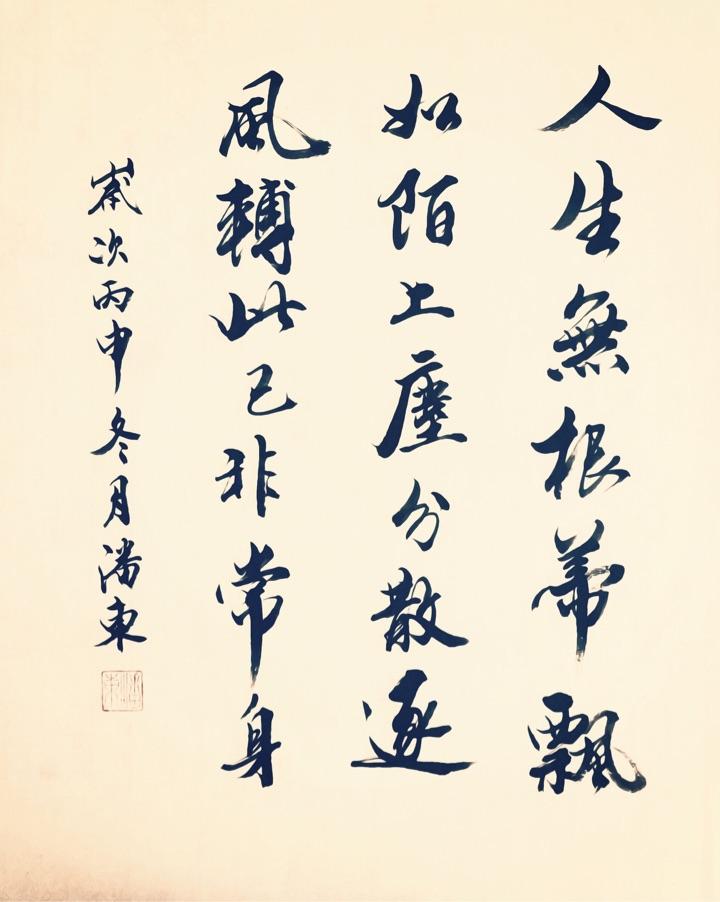 人生無根蒂飄
如陌上塵分散逐
風轉此已非常身
歲次丙申冬月潘東